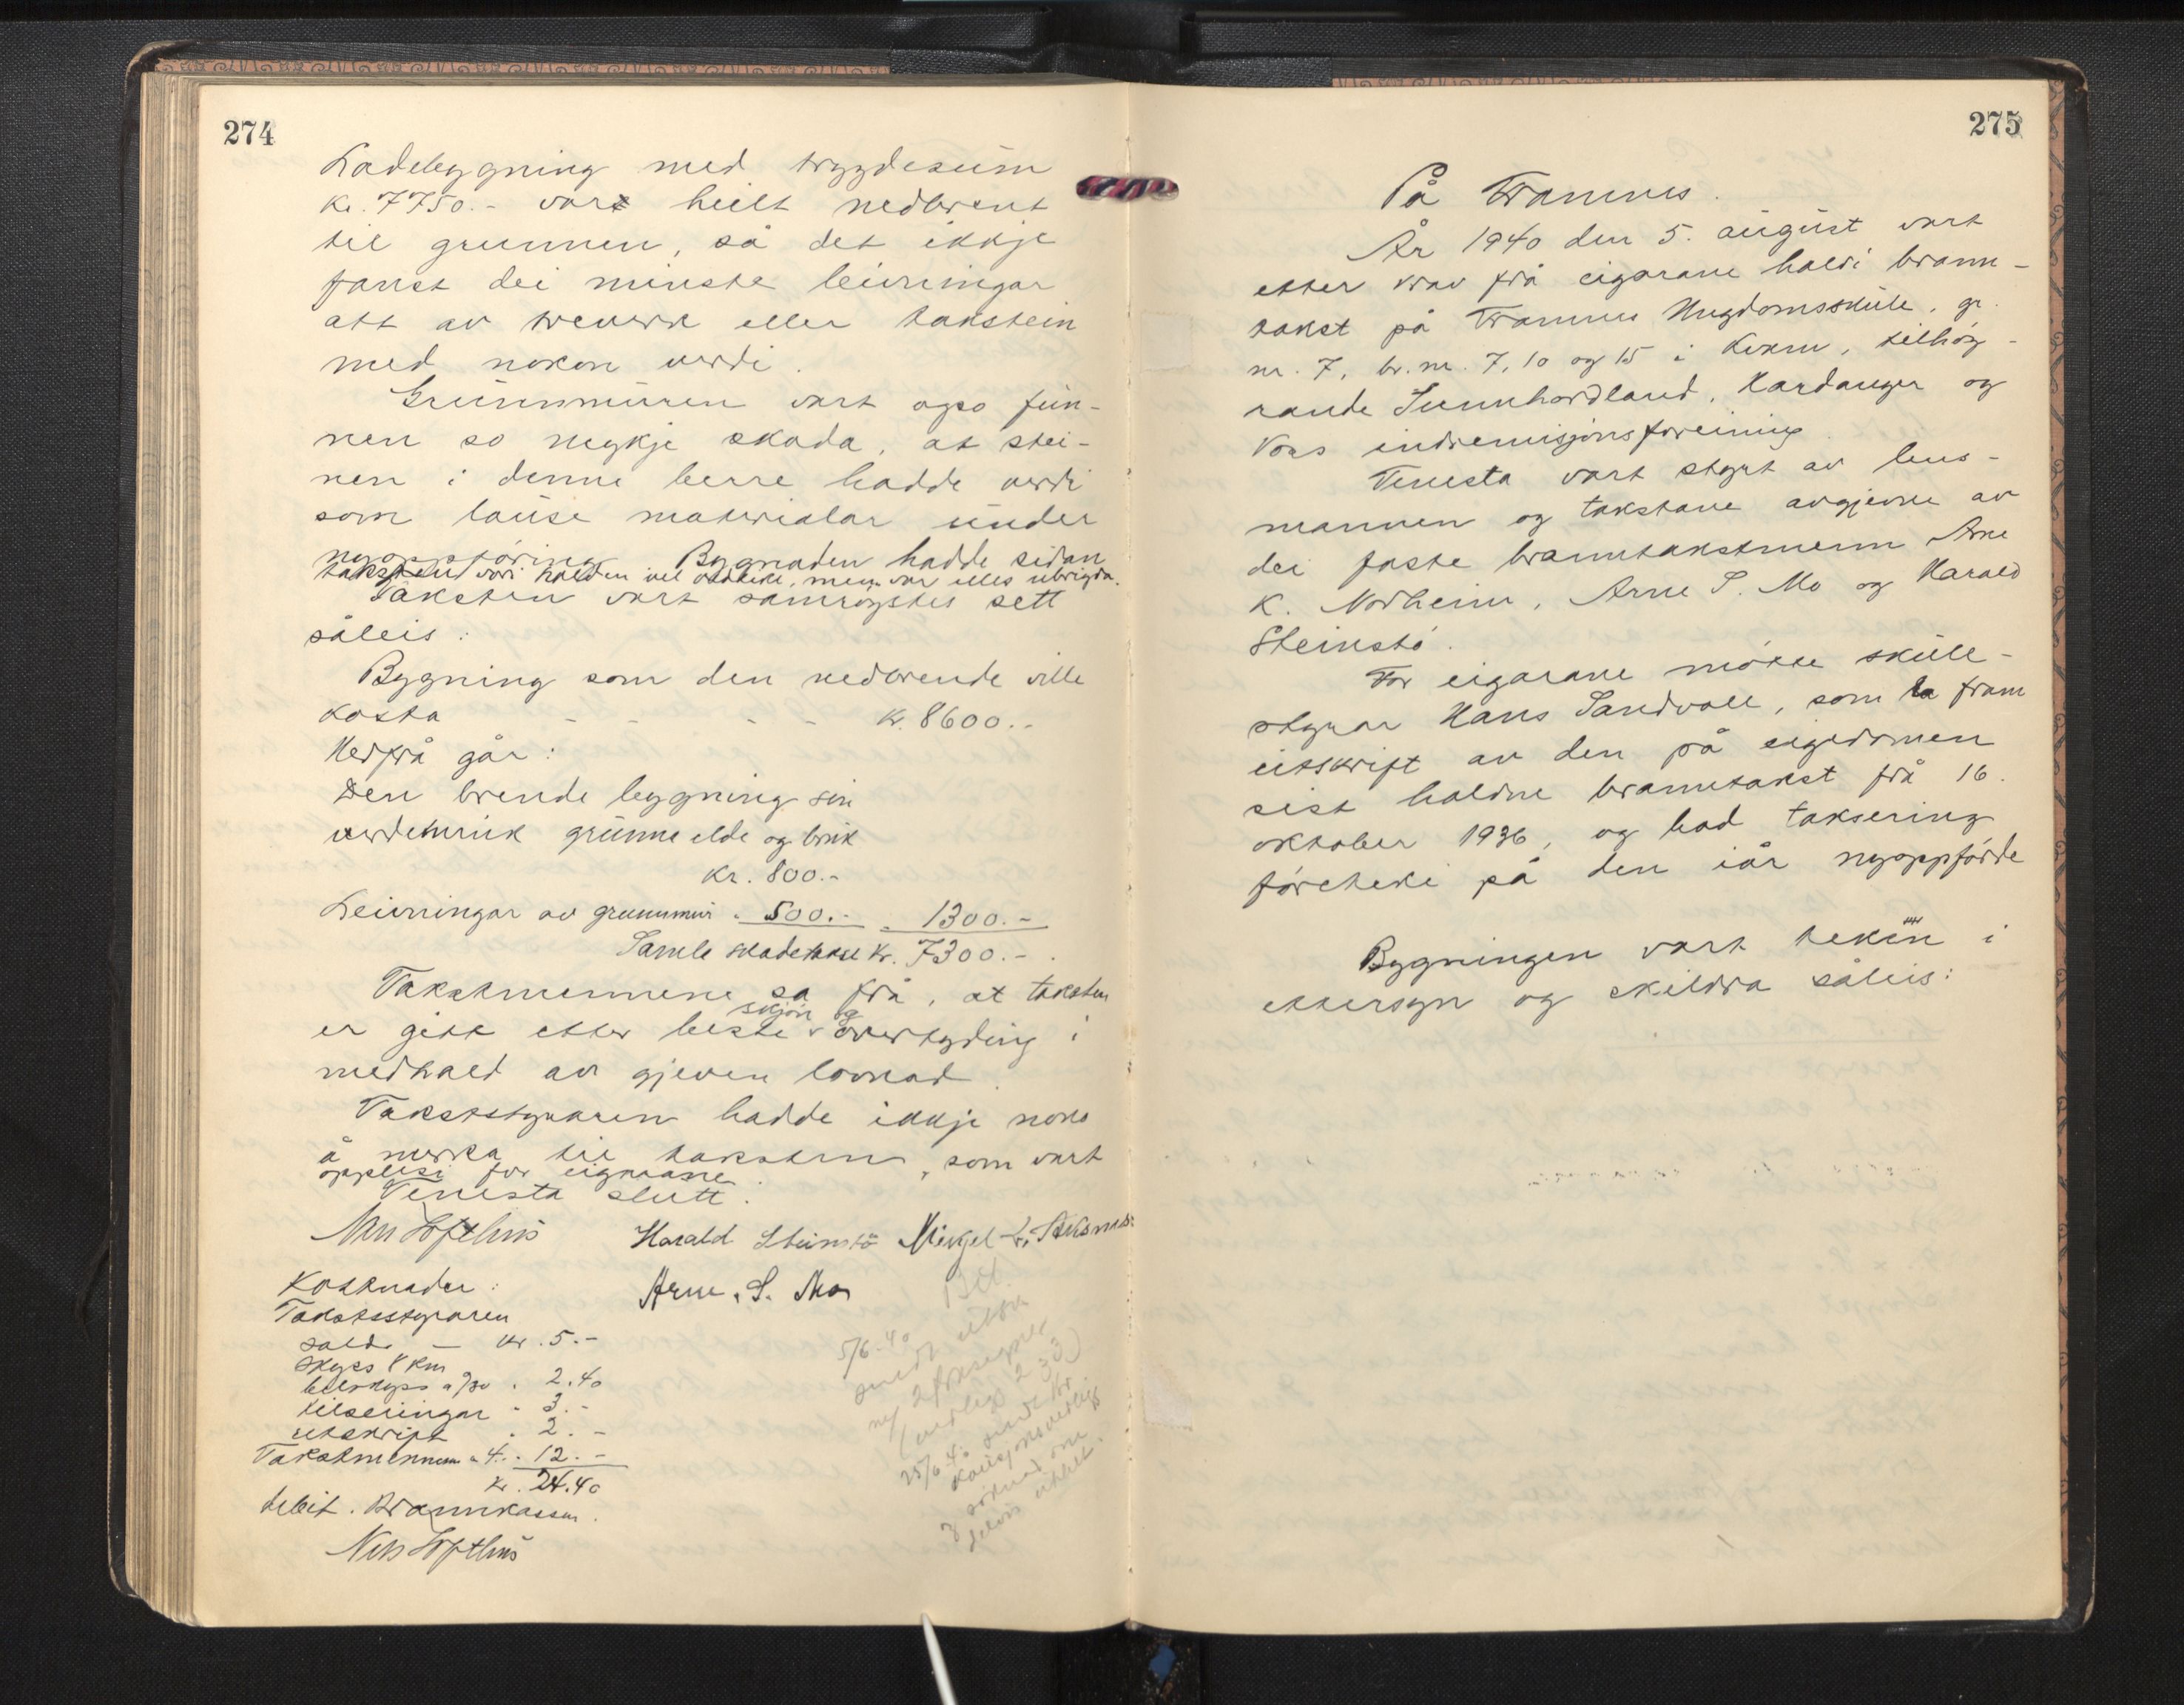 274
Ladebygning med trygdesum
kr. 7750.- vart heilt nedbrent
til grunnen, så det ikkje
fanst dei minste leivningar
att av treverk eller takstein
med nokon verdi.
Grunnmuren vart ogso fun-
nen so mykje skada, at stei-
nen i denne berre hadde verdi
som lause materialar under
nyoppföring. Bygnaden hadde sidan
taksten vori halden vel vedlike, men var elles ubrigda.
Taksten vart samröystes sett
såleis:
Bygning som den nedbrende ville
kosta - - - - kr. 8600.-
Herfrå går:
Den brende bygning sin
verdemink grunna elde og bruk
kr. 800.-
Leivningar av grunnmur " 500.- " 1300.-
Samla skadetakst kr. 7300.-
Takstmennene sa frå, at taksten
er gitt etter beste skjön og overtyding i
medhald av gjeven lovnad.
Takststyraren hadde ikkje noko
å merka til taksten, som vart
opplesi for eigarane.
Tenesta slutt.
Nils Lofthus Harald Steinstö Mikjel Aksnes
Arne S. Mo
Kostnader:
Takststyraren
salär — kr. 5.-
skyss 8 km
bilskyss a /30 " 2.40
tilseiingar " 3.-
utskrift " 2.-
Takstmennene a 4.- " 12.-
kr. 24.40
debit. Brannkassen.
Nils Lofthus
5/6-40
sendt utskr
25/6-40
275
På Framnes.
År 1940 den 5. august vart
etter krav frå eigarane haldi brann-
takst på Framnes Ungdomsskule, gr.
nr. 7, br. nr. 7, 10 og 15 i Kvam, tilhöy-
rande Sunnhordland, Hardanger og
Voss indremisjonsforeining.
Tenesta vart styrt av lens-
mannen og takstane avgjevne av
dei faste branntakstmenn Arne
K. Norheim, Arne S. Mo og Harald
Steinstö.
For eigarane mötte skule-
styrar Hans Sandvoll, som la fram
utskrift av den på eigedomen
sist haldne branntakst frå 16.
oktober 1936, og bad taksering
företeki på den iår nyoppförde
Bygningen vart tekin i
ettersyn og skildra såleis: